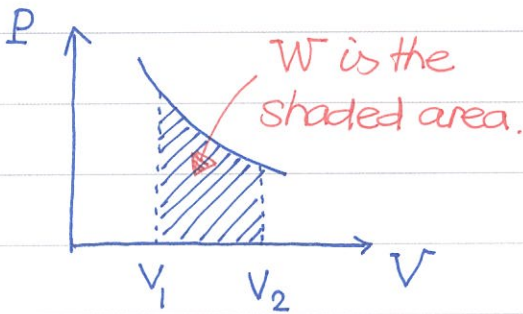 P
W is the
shaded area.
V₁
V₂
V